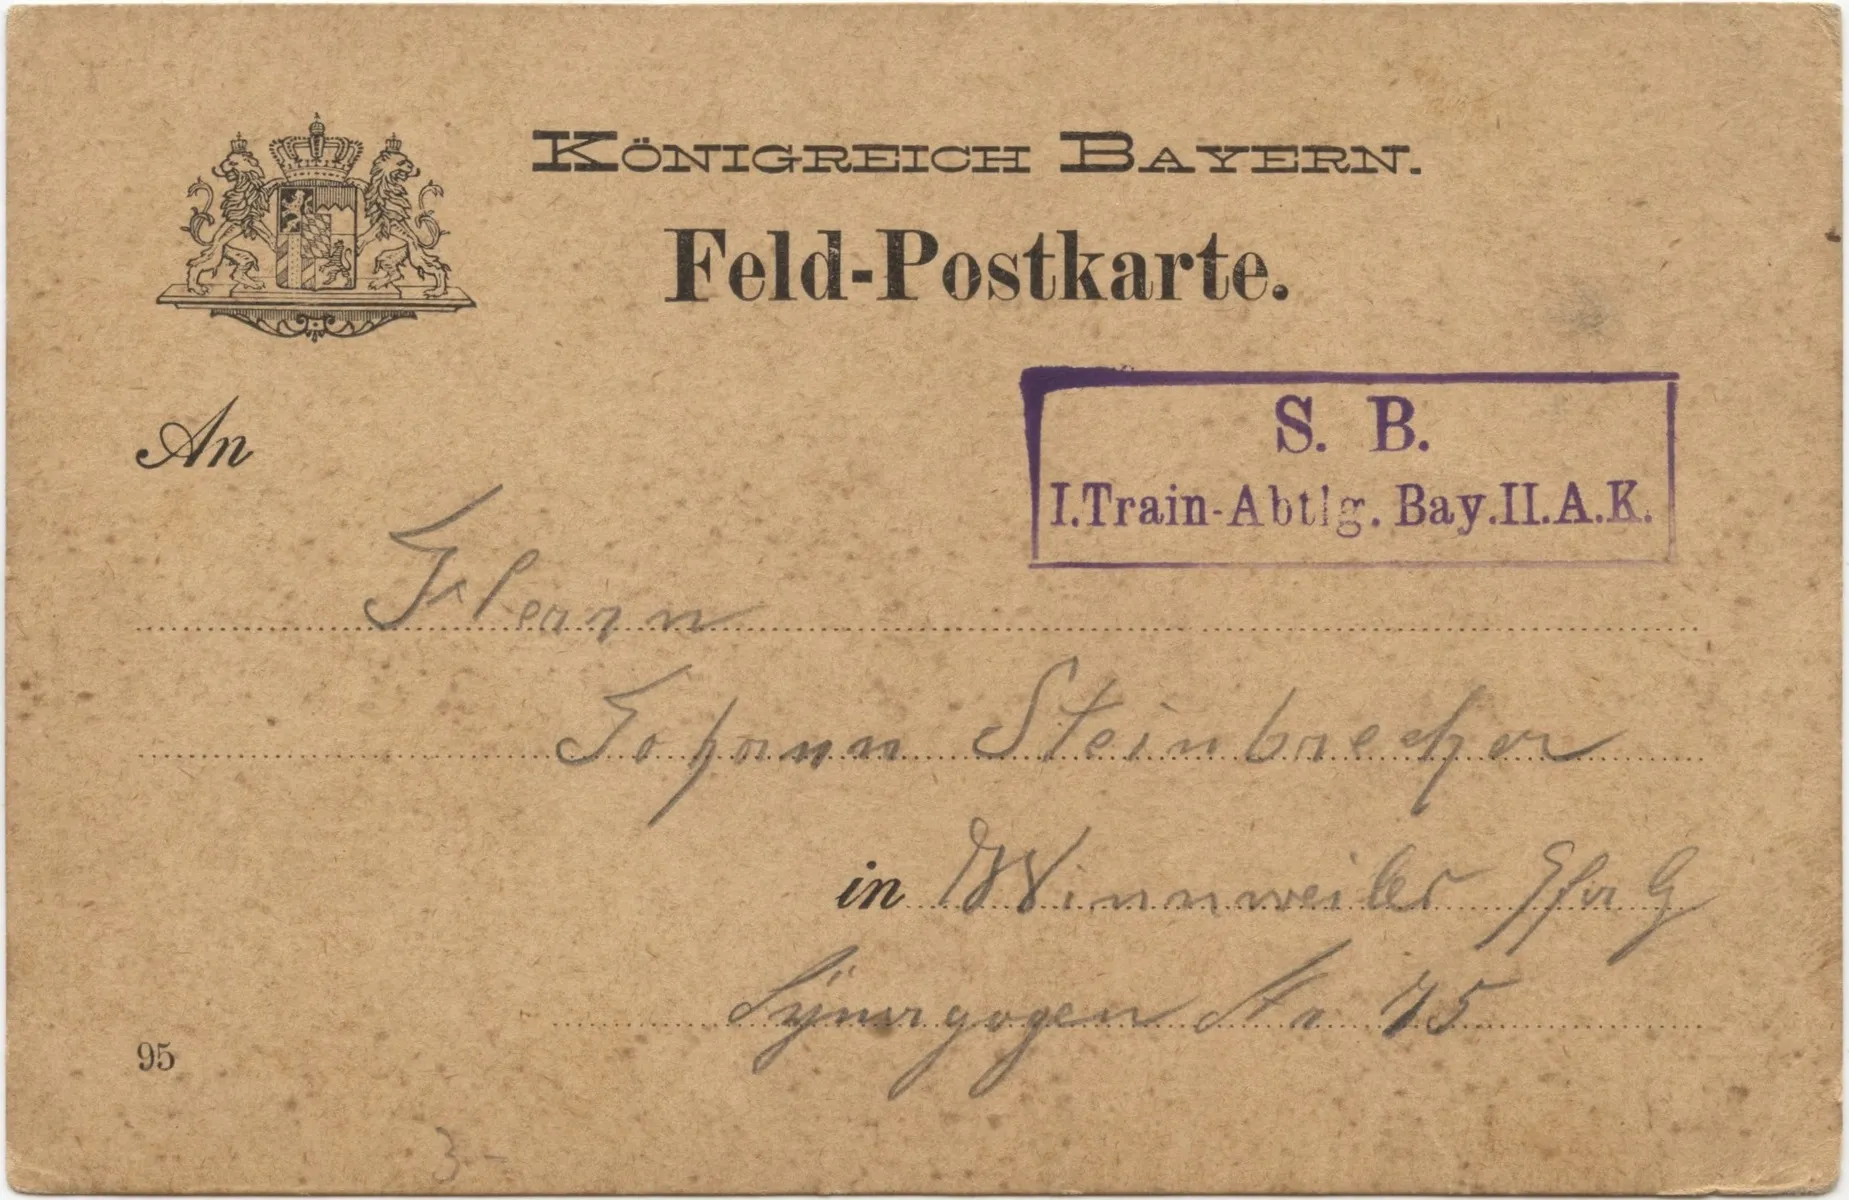 KÖNIGREICH BAYERN.
Feld-Postkarte.
S. B.
I.Train-Abtlg. Bay.II.A.K.
An
Herrn
Johann Steinbrecher
in Winnweiler Pfalz
Synagogen Str 75
95
3-